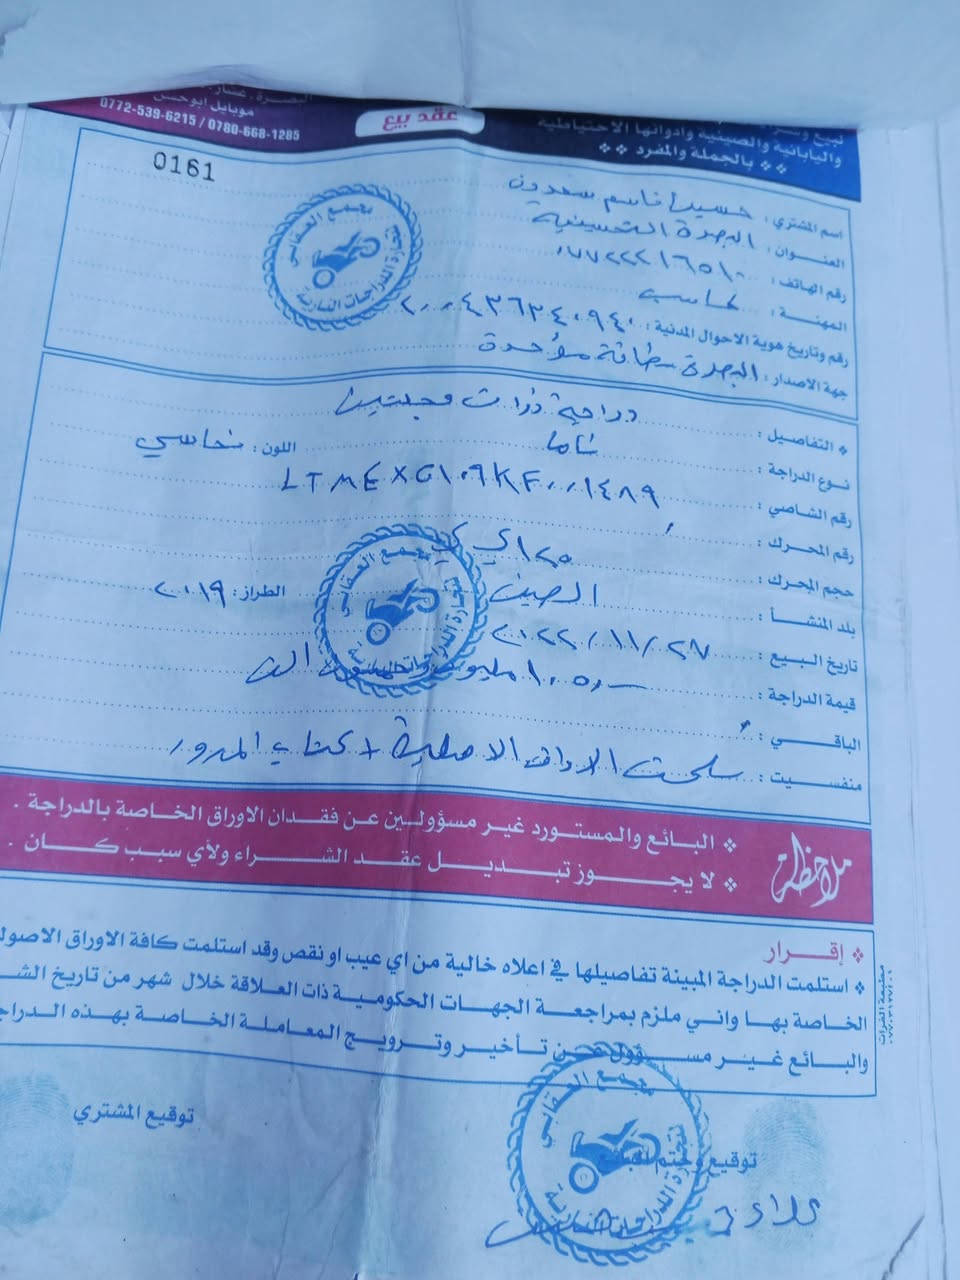 البصرة . عشار
موبايل ابو حسن
0772-539-6215 / 0780-668-1285
عقد بيع
لبيع
واليابانية والصينية وادواتها الاحتياطية
❖❖ بالجملة والمفرد ❖❖
0161
اسم المشتري : حسين قاسم سعدون
العنوان : البصرة التحسينية
رقم الهاتف : ٠٧٧٢٢٢١٦٥١٠
المهنة : كاسب
رقم وتاريخ هوية الاحوال المدنية : ٢٠٠٤٣٦٣٤٠٩٤٠
جهة الاصدار : البصرة بطاقة موحدة
مجمع العقابي
لتجارة الدراجات النارية
❖ التفاصيل : دراجة ذات عجلتين
نوع الدراجة : ناما اللون : نحاسي
رقم الشاصي : LTMEXG١٠٩KF٠٠١٤٨٩
رقم المحرك :
حجم المحرك : ١٢٥ سي سي
بلد المنشأ : الصين الطراز : ٢٠١٩
تاريخ البيع : ٢٠٢٢/١١/٢٧
قيمة الدراجة : ١٠٥٠ مليون وخمسون الف
الباقي :
منفسيت : سلمت الاوراق الاصلية + كتاب المرور
مجمع العقابي
لتجارة الدراجات النارية
ملاحظة
❖ البائع والمستورد غير مسؤولين عن فقدان الاوراق الخاصة بالدراجة .
❖ لا يجوز تبديل عقد الشراء ولأي سبب كان .
❖ إقرار
❖ استلمت الدراجة المبينة تفاصيلها في اعلاه خالية من اي عيب او نقص وقد استلمت كافة الاوراق الاصول
الخاصة بها واني ملزم بمراجعة الجهات الحكومية ذات العلاقة خلال شهر من تاريخ الش
والبائع غير مسؤول عن تأخير وترويج المعاملة الخاصة بهذه الدراج
مطبعة الفرات
توقيع المشتري
توقيع وختم البائع
مجمع العقابي
لتجارة الدراجات النارية
علاء